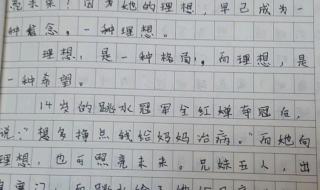 来！因为她的理想，早已成为一
种信念。一种理想。
理想，是一种格局。而理想，是
一种希望。
14岁的跳水冠军全红婵夺冠后，
说："想多挣点钱给妈妈治病。"而她的
理想，也可照亮未来。兄妹五人，出